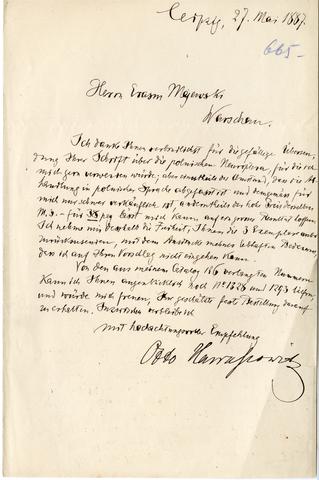 Leipzig, 27. Mai 1887.
665-
Herrn Erasm Majewski
Warschau.
Ich danke Ihnen verbindlichst für die gefällige Übersen-
dung Ihrer Schrift über die polnischen Neuroptera, für die ich
mich gern verwenden würde; aber einestheils der Umstand, dass die Ab-
handlung in polnischer Sprache abgefasst ist und demgemäss für
mich nur schwer verkäuflich ist, anderntheils der hohe Preis derselben
M. 3.- für pag lässt mich kaum auf ein Resultat hoffen.
Ich nehme mir deshalb die Freiheit, Ihnen die 3 Exemplare wieder
zurückzusenden, mit dem Ausdruck meines lebhaften Bedauerns,
dass ich auf Ihren Vorschlag nicht eingehen kann.
Von den aus meinem Catalog 136 verlangten Nummern
kann ich Ihnen augenblicklich noch No 1328 und 1293 liefern,
und würde mich freuen, Ihre geschätzte feste Bestellung darauf
zu erhalten. Inzwischen verbleibe ich
mit hochachtungsvoller Empfehlung
Otto Harrassowitz